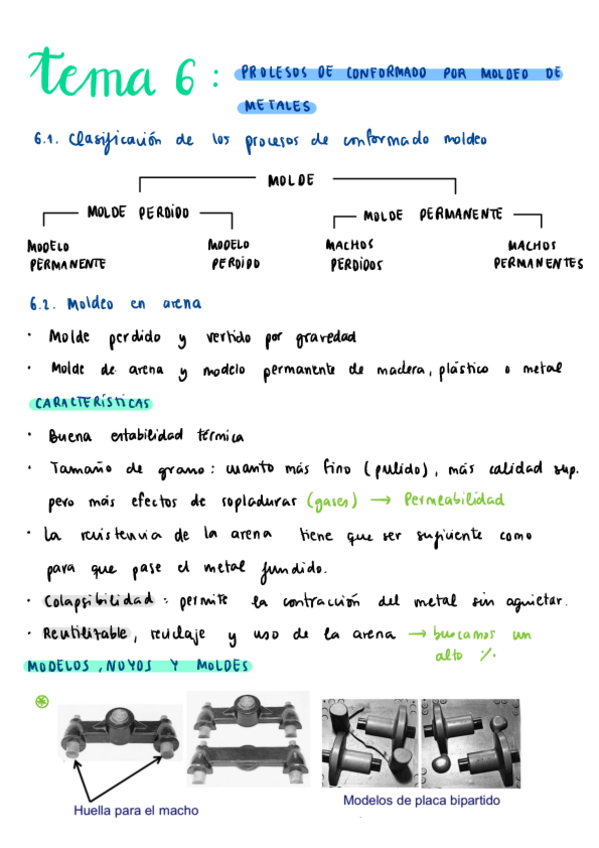 tema 6: PROCESOS DE CONFORMADO POR MOLDEO DE
METALES
6.1. Clasificación de los procesos de conformado moldeo
MOLDE
MOLDE PERDIDO MOLDE PERMANENTE
MODELO MODELO MACHOS MACHOS
PERMANENTE PERDIDO PERDIDOS PERMANENTES
6.2. Moldeo en arena
· Molde perdido y vertido por gravedad
· Molde de arena y modelo permanente de madera, plástico o metal
CARACTERÍSTICAS
· Buena estabilidad térmica
· Tamaño de grano: cuanto más fino (pulido), más calidad sup.
pero más efectos de sopladuras (gases) → Permeabilidad
· La resistencia de la arena tiene que ser suficiente como
para que pase el metal fundido.
· Colapsibilidad: permite la contracción del metal sin agrietar.
· Reutilizable, reciclaje y uso de la arena → buscamos un
alto %.
MODELOS, NOYOS Y MOLDES
Huella para el macho
Modelos de placa bipartido